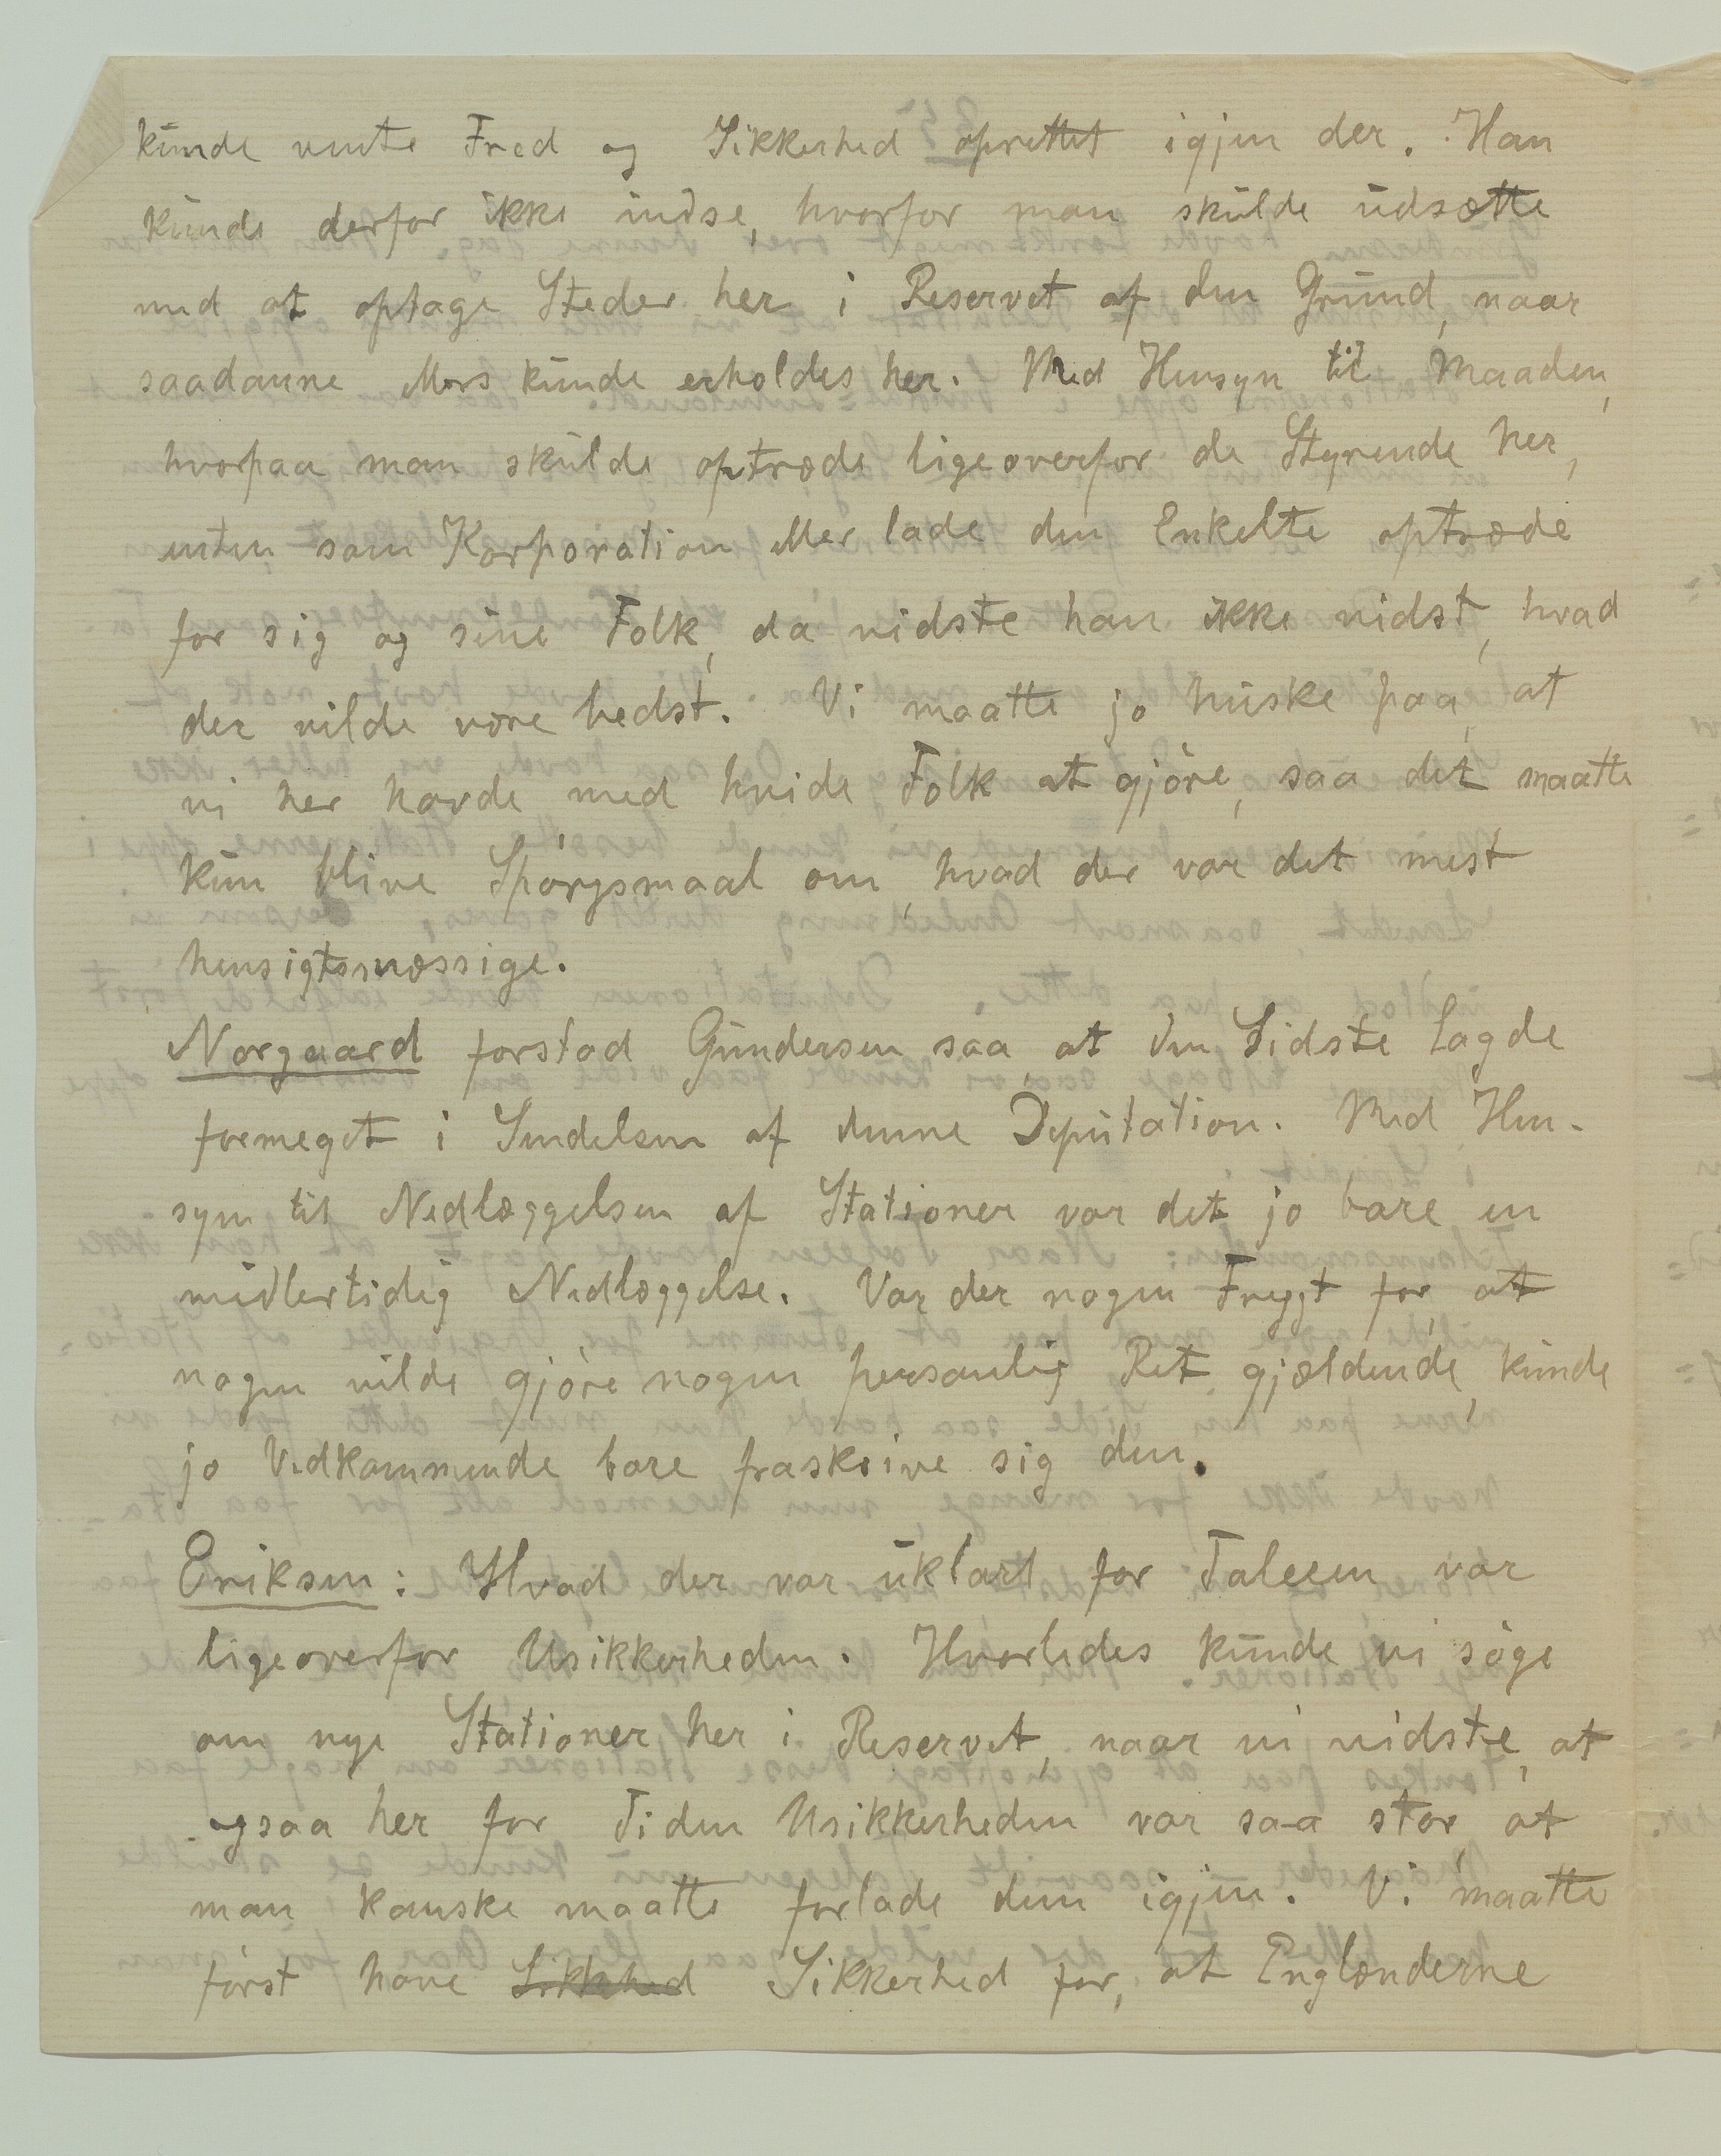 kunde vente Fred og Sikkerhed oprettet igjen der. Han
kunde derfor ikke indse, hvorfor man skulde udsætte
med at optage Steder her i Reservet af den Grund, naar
saadanne ellers kunde erholdes her. Med Hensyn til Maaden,
hvorpaa man skulde optræde ligeoverfor de Styrende her,
enten som Korporation eller lade den Enkelte optræde
for sig og sine Folk, da vidste han ikke vidst, hvad
der vilde være bedst. Vi maatte jo huske paa, at
vi her havde med hvide Folk at gjöre, saa det maatte
kun blive Spörgsmaal om, hvad der var det mest
hensigtsmæssige.
Norgaard forstod Gundersen saa, at den Sidste lagde
formeget i Sendelsen af denne Deputation. Med Hen-
syn til Nedlæggelsen af Stationer var det jo bare en
midlertidig Nedlæggelse. Var der nogen Frygt for, at
nogen vilde gjöre nogen personlig Ret gjældende, kunde
jo Vedkommende bare fraskrive sig den.
Eriksen: Hvad der var uklart for Taleren var
ligeoverfor Usikkerheden. Hvorledes kunde vi söge
om nye Stationer her i Reservet, naar vi vidste, at
ogsaa her for Tiden Usikkerheden var saa stor, at
man kanske maatte forlade dem igjen. Vi maatte
först have Sikkhed Sikkerhed for, at Englænderne